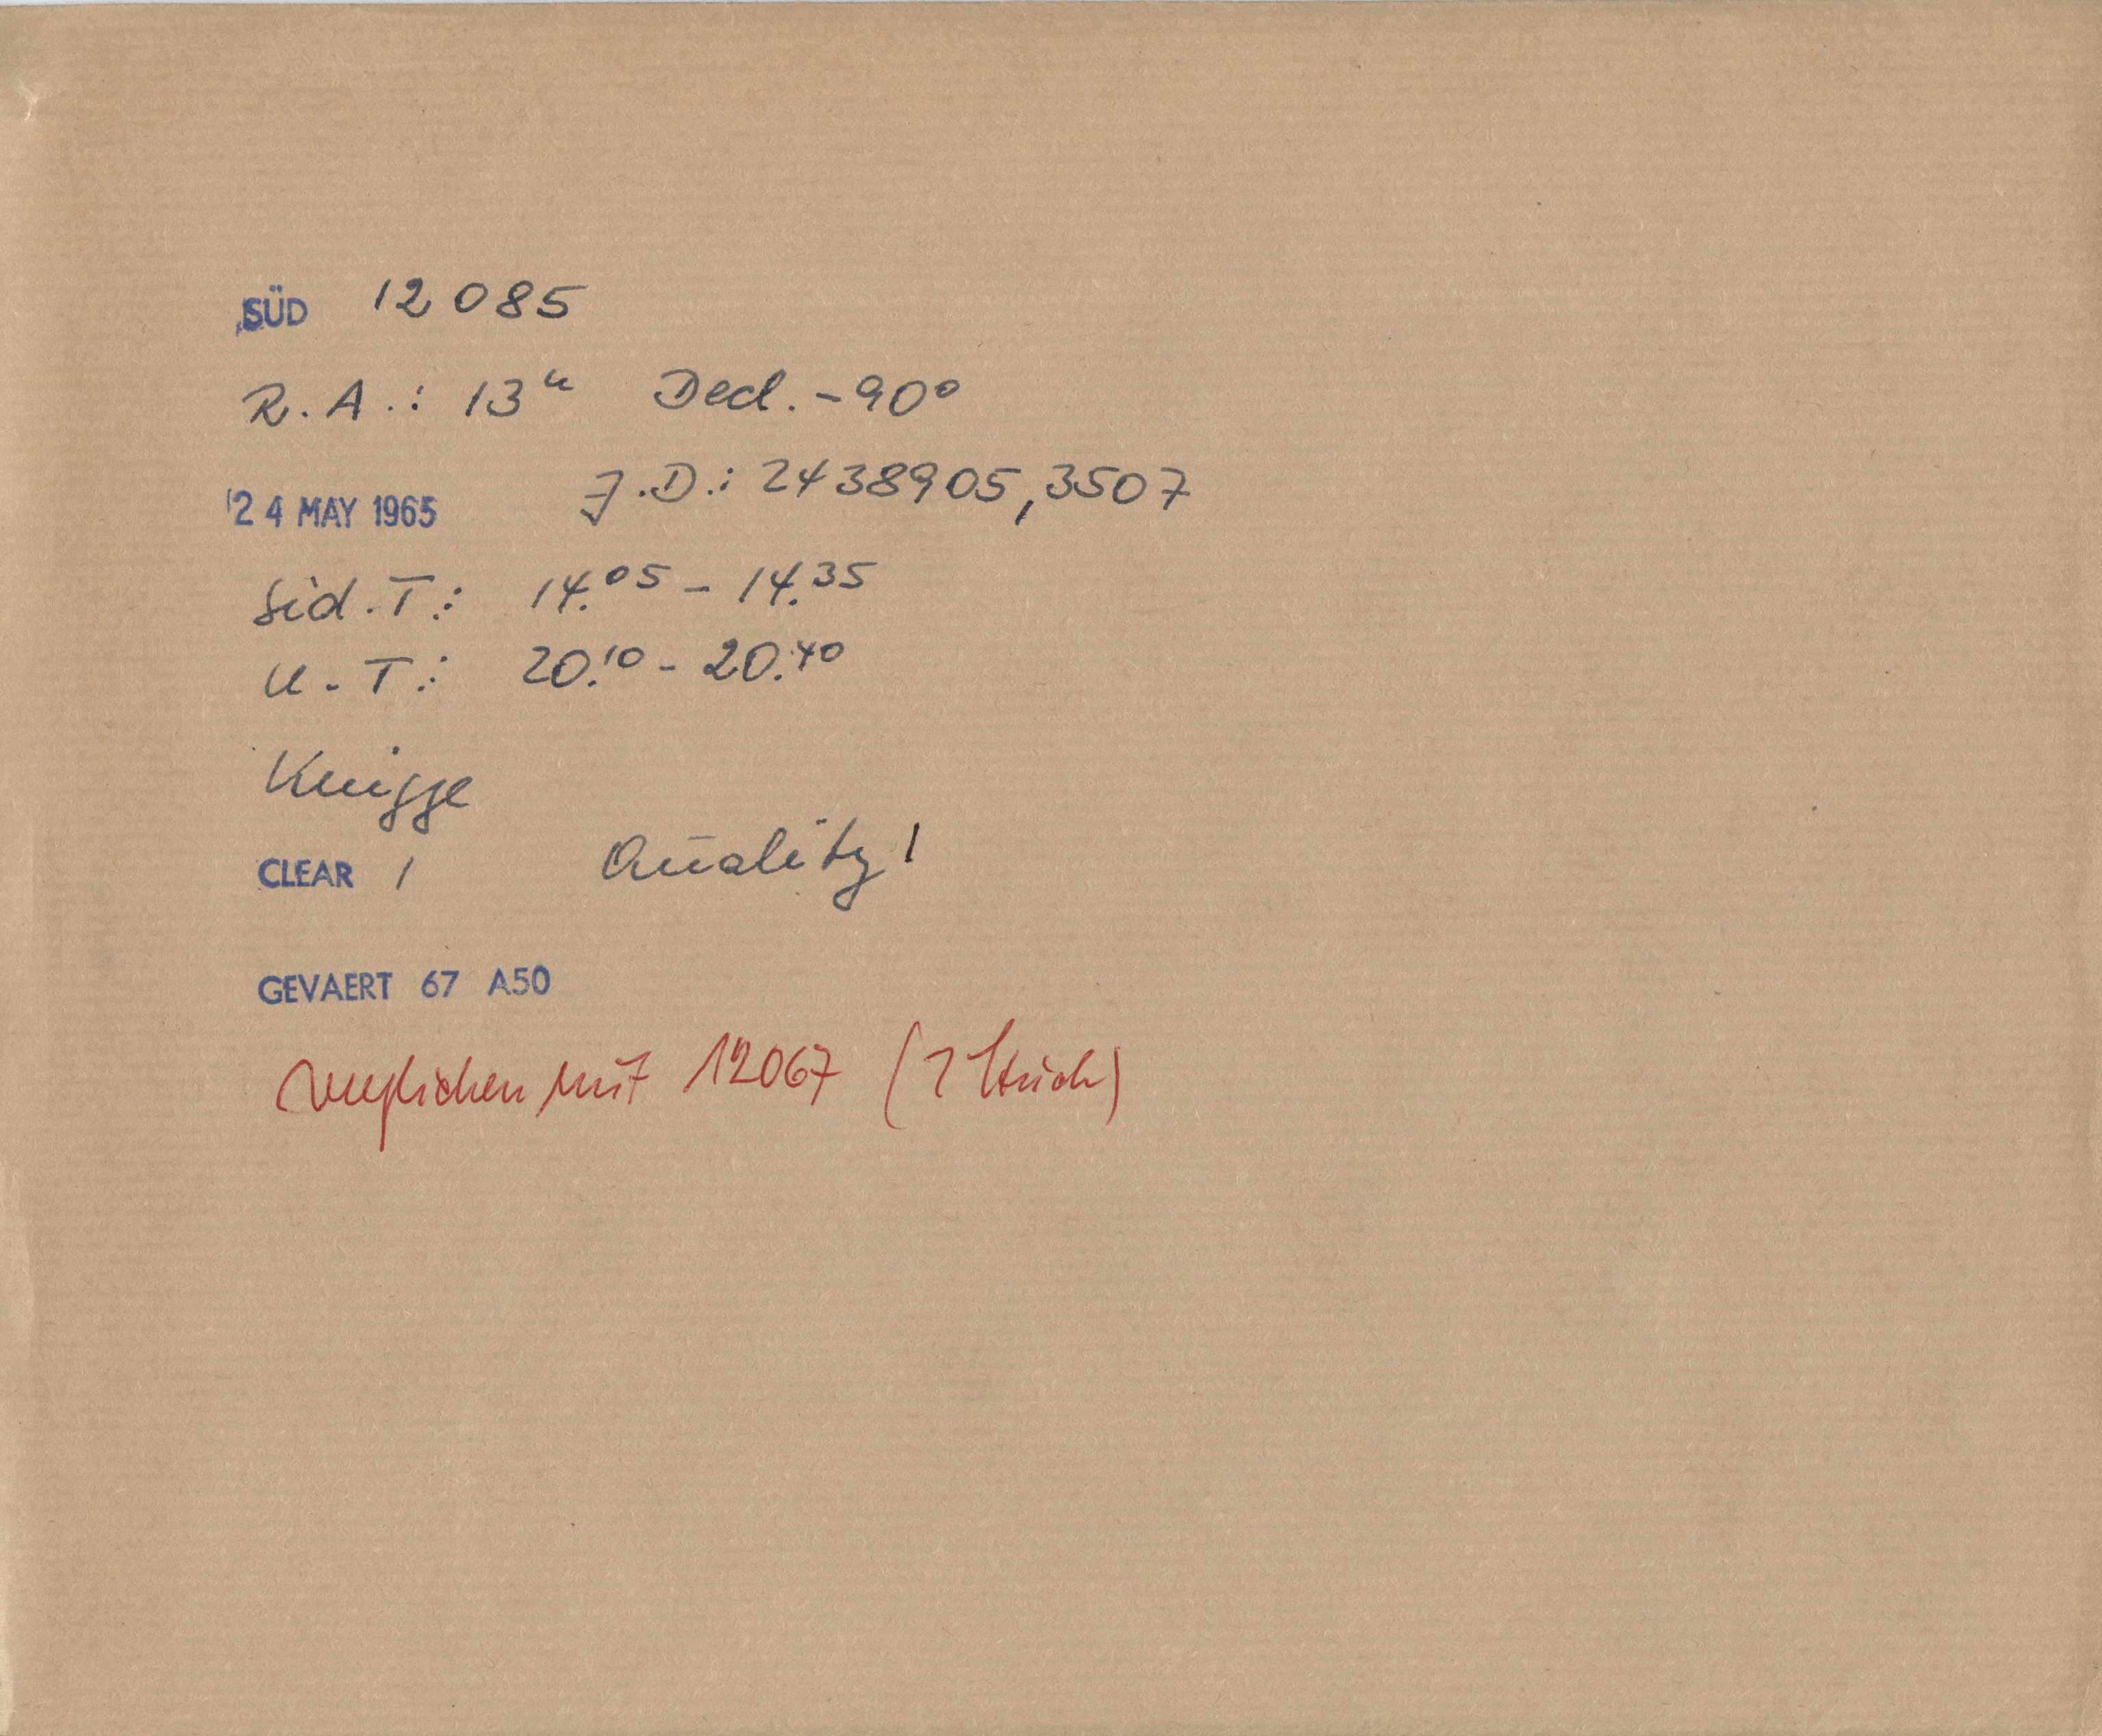 SÜD 12085
R.A.: 13ʰ Decl. -90°
24 MAY 1965 J.D.: 2438905,3507
Sid.T.: 14.05 - 14.35
U.T.: 20.10 - 20.40
Knigge
CLEAR 1 Quality 1
GEVAERT 67 A50
verglichen mit 12067 (? Stück)